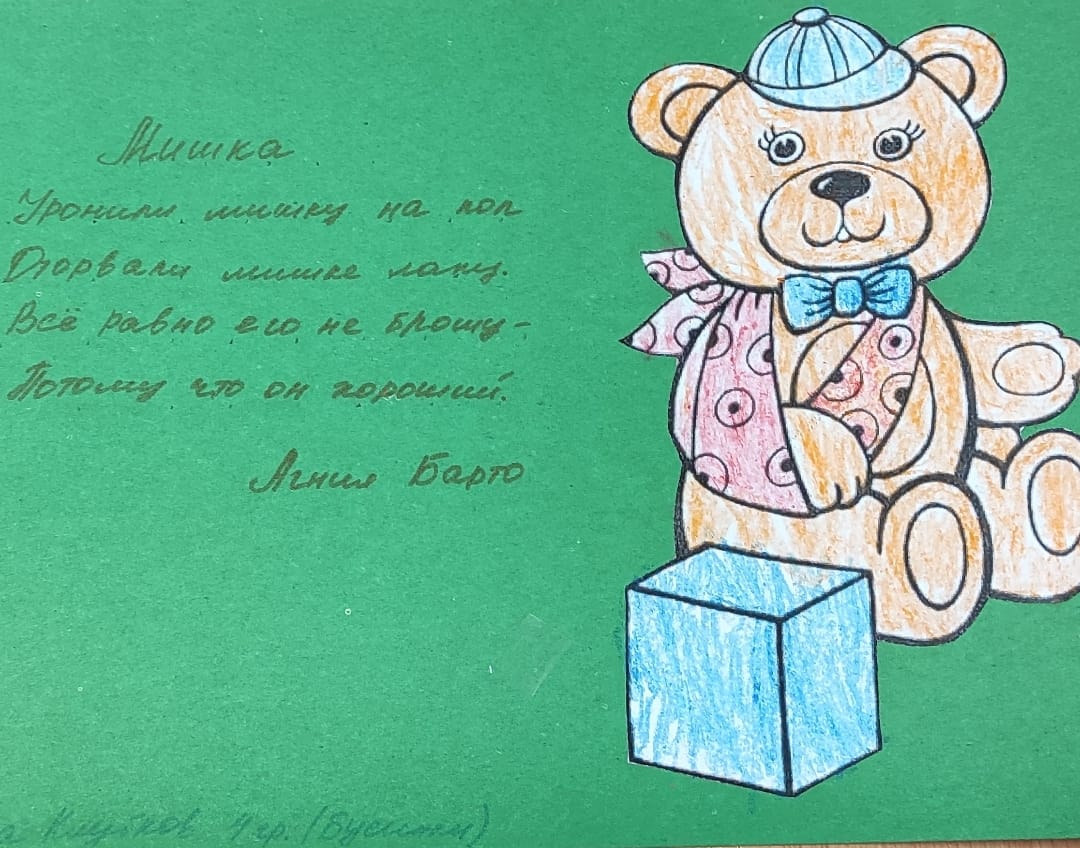 Мишка
Уронили мишку на пол
Оторвали мишке лапу.
Всё равно его не брошу-
Потому что он хороший.
Агния Барто
4 гр. (бусинки)